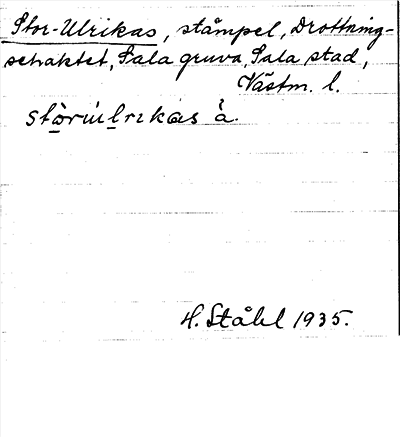 Stor-Ulrikas, stämpel, Drottning-
schaktet, Sala gruva, Sala stad,
Västm. l.
H. Ståhl 1935.